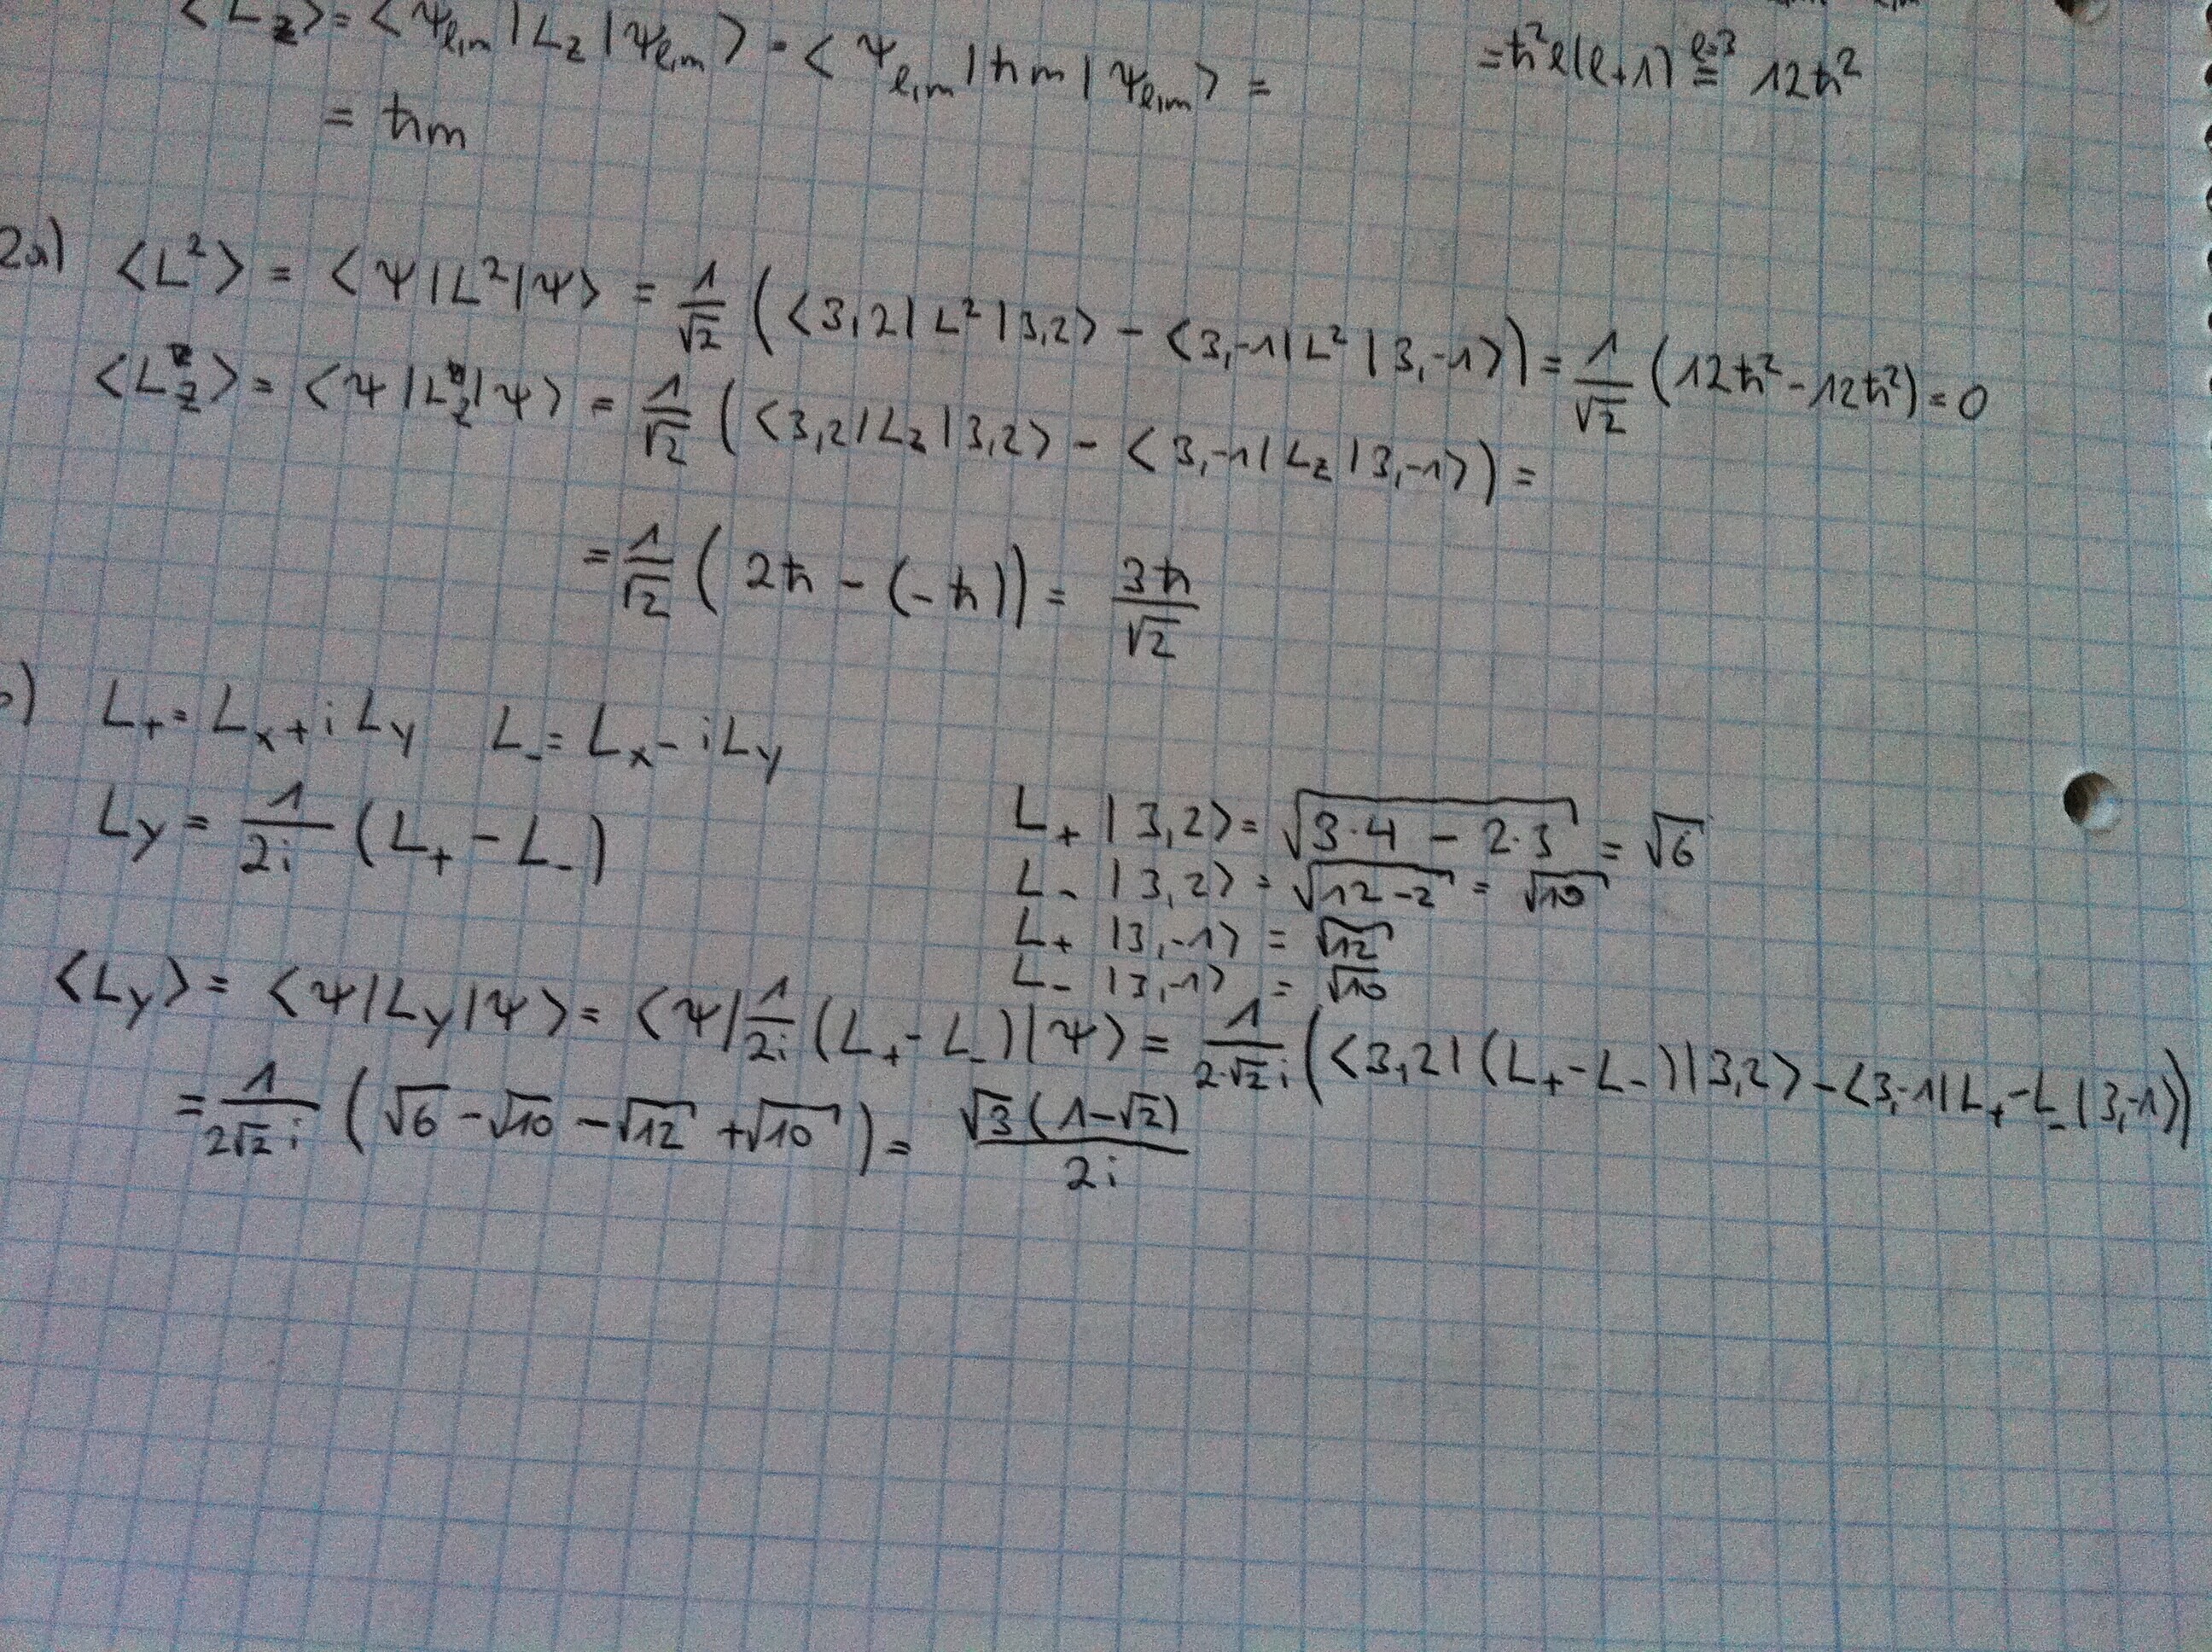 <L_z> = <ψ_{l,m} | L_z | ψ_{l,m}> = <ψ_{l,m} | ħm | ψ_{l,m}> =
= ħm
= ħ²l(l+1) \overset{l=3}{=} 12ħ²
2a) <L²> = <ψ|L²|ψ> = \frac{1}{√2} ( <3,2| L² |3,2> - <3,-1| L² |3,-1> ) = \frac{1}{√2} (12ħ² - 12ħ²) = 0
<L_z> = <ψ|L_z|ψ> = \frac{1}{√2} ( <3,2| L_z |3,2> - <3,-1| L_z |3,-1> ) =
= \frac{1}{√2} ( 2ħ - (-ħ) ) = \frac{3ħ}{√2}
) L_+ = L_x + i L_y L_- = L_x - i L_y
L_y = \frac{1}{2i} (L_+ - L_-)
L_+ |3,2> = \sqrt{3·4 - 2·3} = √6
L_- |3,2> = \sqrt{12-2} = √10
L_+ |3,-1> = √12
L_- |3,-1> = √10
<L_y> = <ψ|L_y|ψ> = <ψ| \frac{1}{2i} (L_+ - L_-) |ψ> = \frac{1}{2·√2 i} ( <3,2| (L_+ - L_-) |3,2> - <3,-1| L_+ - L_- |3,-1> )
= \frac{1}{2√2 i} ( √6 - √10 - √12 + √10 ) = \frac{√3 (1-√2)}{2i}